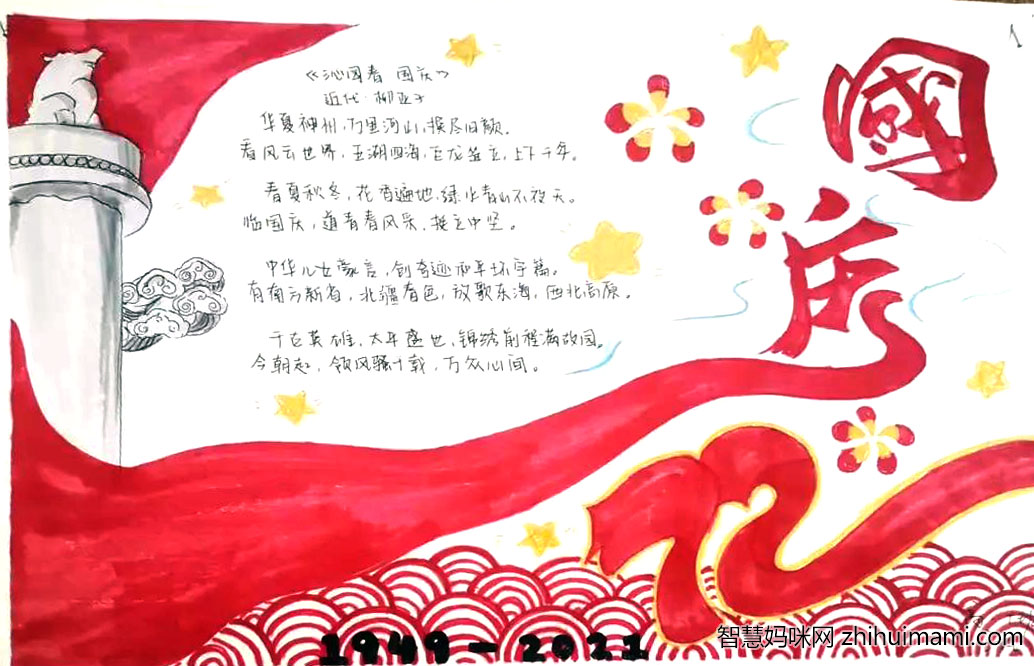 國庆
《沁园春 国庆》
近代·柳亚子
华夏神州，万里河山，换尽旧颜。
看风云世界，五湖四海，巨龙益立，上下千年。
春夏秋冬，花香遍地，绿水青山不夜天。
临国庆，道青春风采，挺立中坚。
中华儿女豪言，创奇迹和平环宇篇。
有南方新省，北疆春色，放歌东海，西北高原。
千古英雄，太平盛世，锦绣前程满故园。
今朝起，领风骚十载，万众心间。
72
1949-2021
智慧妈咪网 zhihuimami.com